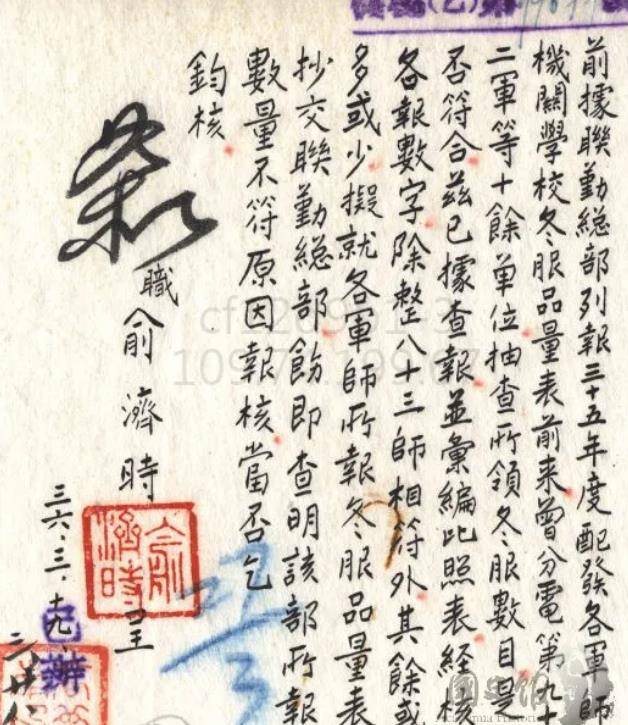 前據聯勤總部列報三十五年度配發各軍師
機關學校冬服品量表前来曾分電第九十
二軍等十餘單位抽查所領冬服數目是
否符合茲已據查報並彙編比照表經核
各報數字除整八十三師相符外其餘或
多或少擬就各軍師所報冬服品量表
抄交聯勤總部飭即查明該部所報
數量不符原因報核當否乞
鈞核
職俞濟時呈
俞濟時
三六.三.十九.
已辦